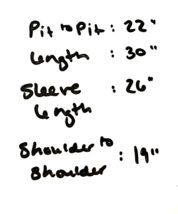 Pit to Pit : 22"
Length : 30"
Sleeve : 26"
Length
Shoulder to
Shoulder : 19"